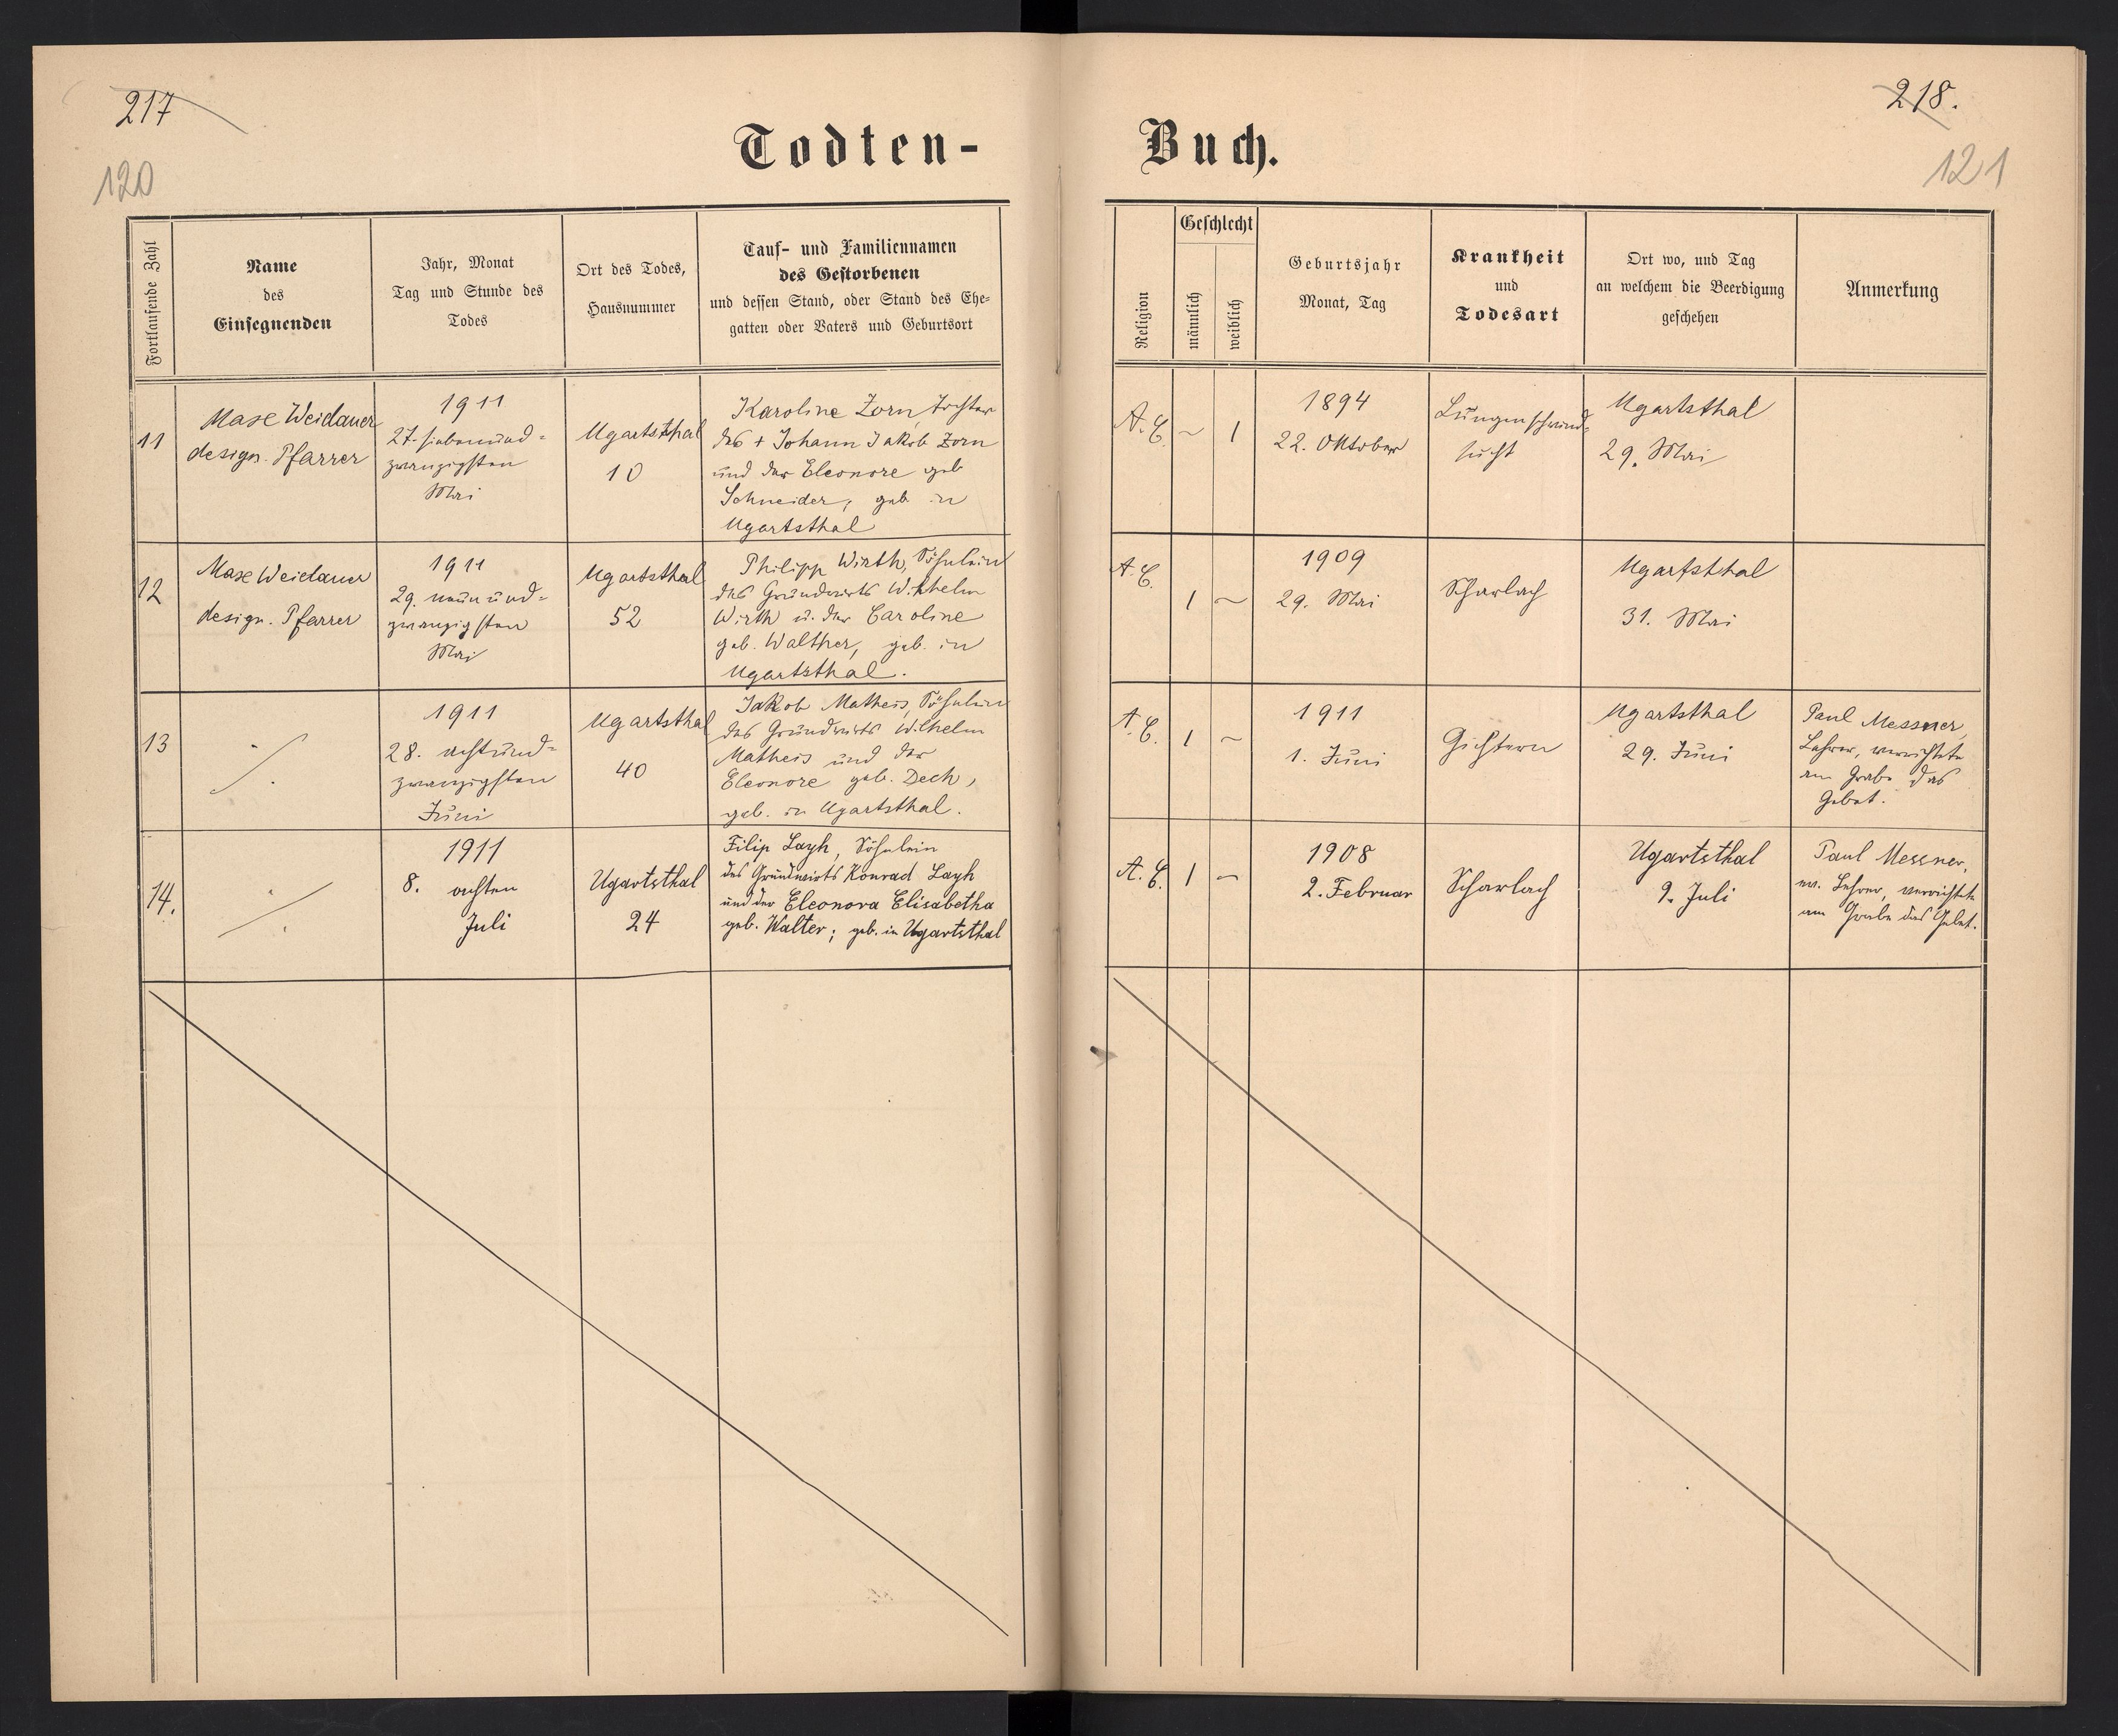 217
218.
120
121
Todten-
Buch.
Fortlaufende Zahl
Name
des
Einsegnenden
Jahr, Monat
Tag und Stunde des
Todes
Ort des Todes,
Hausnummer
Tauf- und Familiennamen
des Gestorbenen
und dessen Stand, oder Stand des Ehe-
gatten oder Vaters und Geburtsort
Religion
Geschlecht
männlich
weiblich
Geburtsjahr
Monat, Tag
Krankheit
und
Todesart
Ort wo, und Tag
an welchem die Beerdigung
geschehen
Anmerkung
11
Maxe Weidauer
design. Pfarrer
1911
27. siebenund-
zwanzigsten
Mai
Ugartsthal
10
Karoline Zorn, Tochter
des + Johann Jakob Zorn
und der Eleonore geb
Schneider, geb in
Ugartsthal
A. C.
~
1
1894
22. Oktober
Lungenschwind-
sucht
Ugartsthal
29. Mai
12
Maxe Weidauer
design. Pfarrer
1911
29. neunund-
zwanzigsten
Mai
Ugartsthal
52
Philipp Wirth, Söhnlein
des Grundwirts Wilhelm
Wirth u. der Caroline
geb. Walther, geb. in
Ugartsthal.
A. C.
1
~
1909
29. Mai
Scharlach
Ugartsthal
31. Mai
13
1911
28. achtund-
zwanzigsten
Juni
Ugartsthal
40
Jakob Matheis, Söhnlein
des Grundwirts Wilhelm
Matheis und der
Eleonore geb. Dech,
geb. in Ugartsthal.
A. C.
1
~
1911
1. Juni
Gichtern
Ugartsthal
29. Juni
Paul Messner,
Lehrer, verrichtete
am Grabe das
Gebet.
14.
1911
8. achten
Juli
Ugartsthal
24
Filip Layh, Söhnlein
des Grundwirts Konrad Layh
und der Eleonora Elisabetha
geb. Walter; geb. in Ugartsthal
A. C.
1
~
1908
2. Februar
Scharlach
Ugartsthal
9. Juli
Paul Messner,
ev. Lehrer, verrichtete
am Grabe das Gebet.